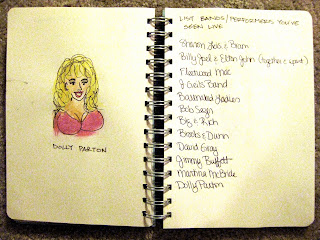 DOLLY PARTON
LIST BANDS/PERFORMERS YOU'VE
SEEN LIVE
Sharon Lois & Bram
Billy Joel & Elton John (together & apart)
Fleetwood Mac
J Geils Band
Barenaked Ladies
Bob Seger
Big & Rich
Brooks & Dunn
David Gray
Jimmy Buffett
Martina McBride
Dolly Parton